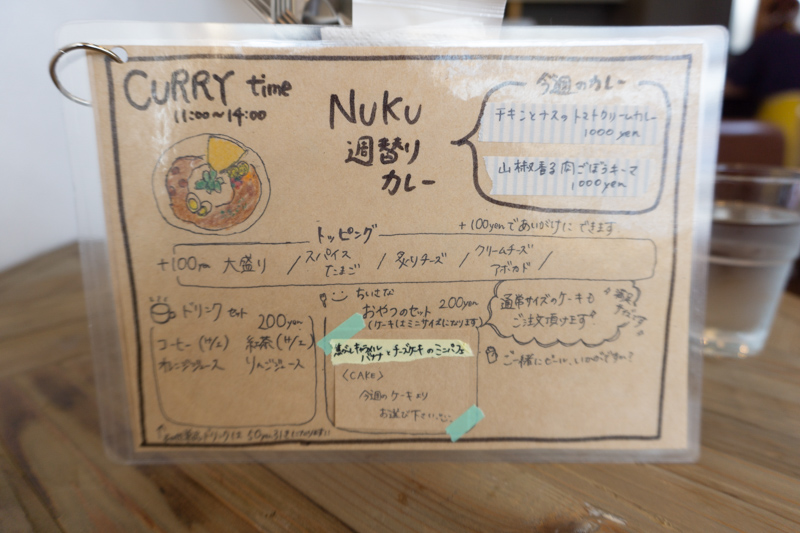 CURRY time
11:00~14:00
NUKU
週替り
カレー
今週のカレー
チキンとナスのトマトクリームカレー
1000yen
山椒香る肉ごぼうキーマ
1000yen
+100yenであいがけにできます
トッピング
+100yen 大盛り / スパイスたまご / 炙りチーズ / クリームチーズ アボカド /
ドリンクセット
200yen
コーヒー(H/I) 紅茶(H/I)
オレンジジュース りんごジュース
ちいさな
おやつのセット 200yen
(ケーキはミニサイズになります)
バナナとチーズケーキのミニパフェ
<CAKE>
今週のケーキより
お選び下さい
通常サイズのケーキも
ご注文頂けます
ご一緒にビール、いかがですか?